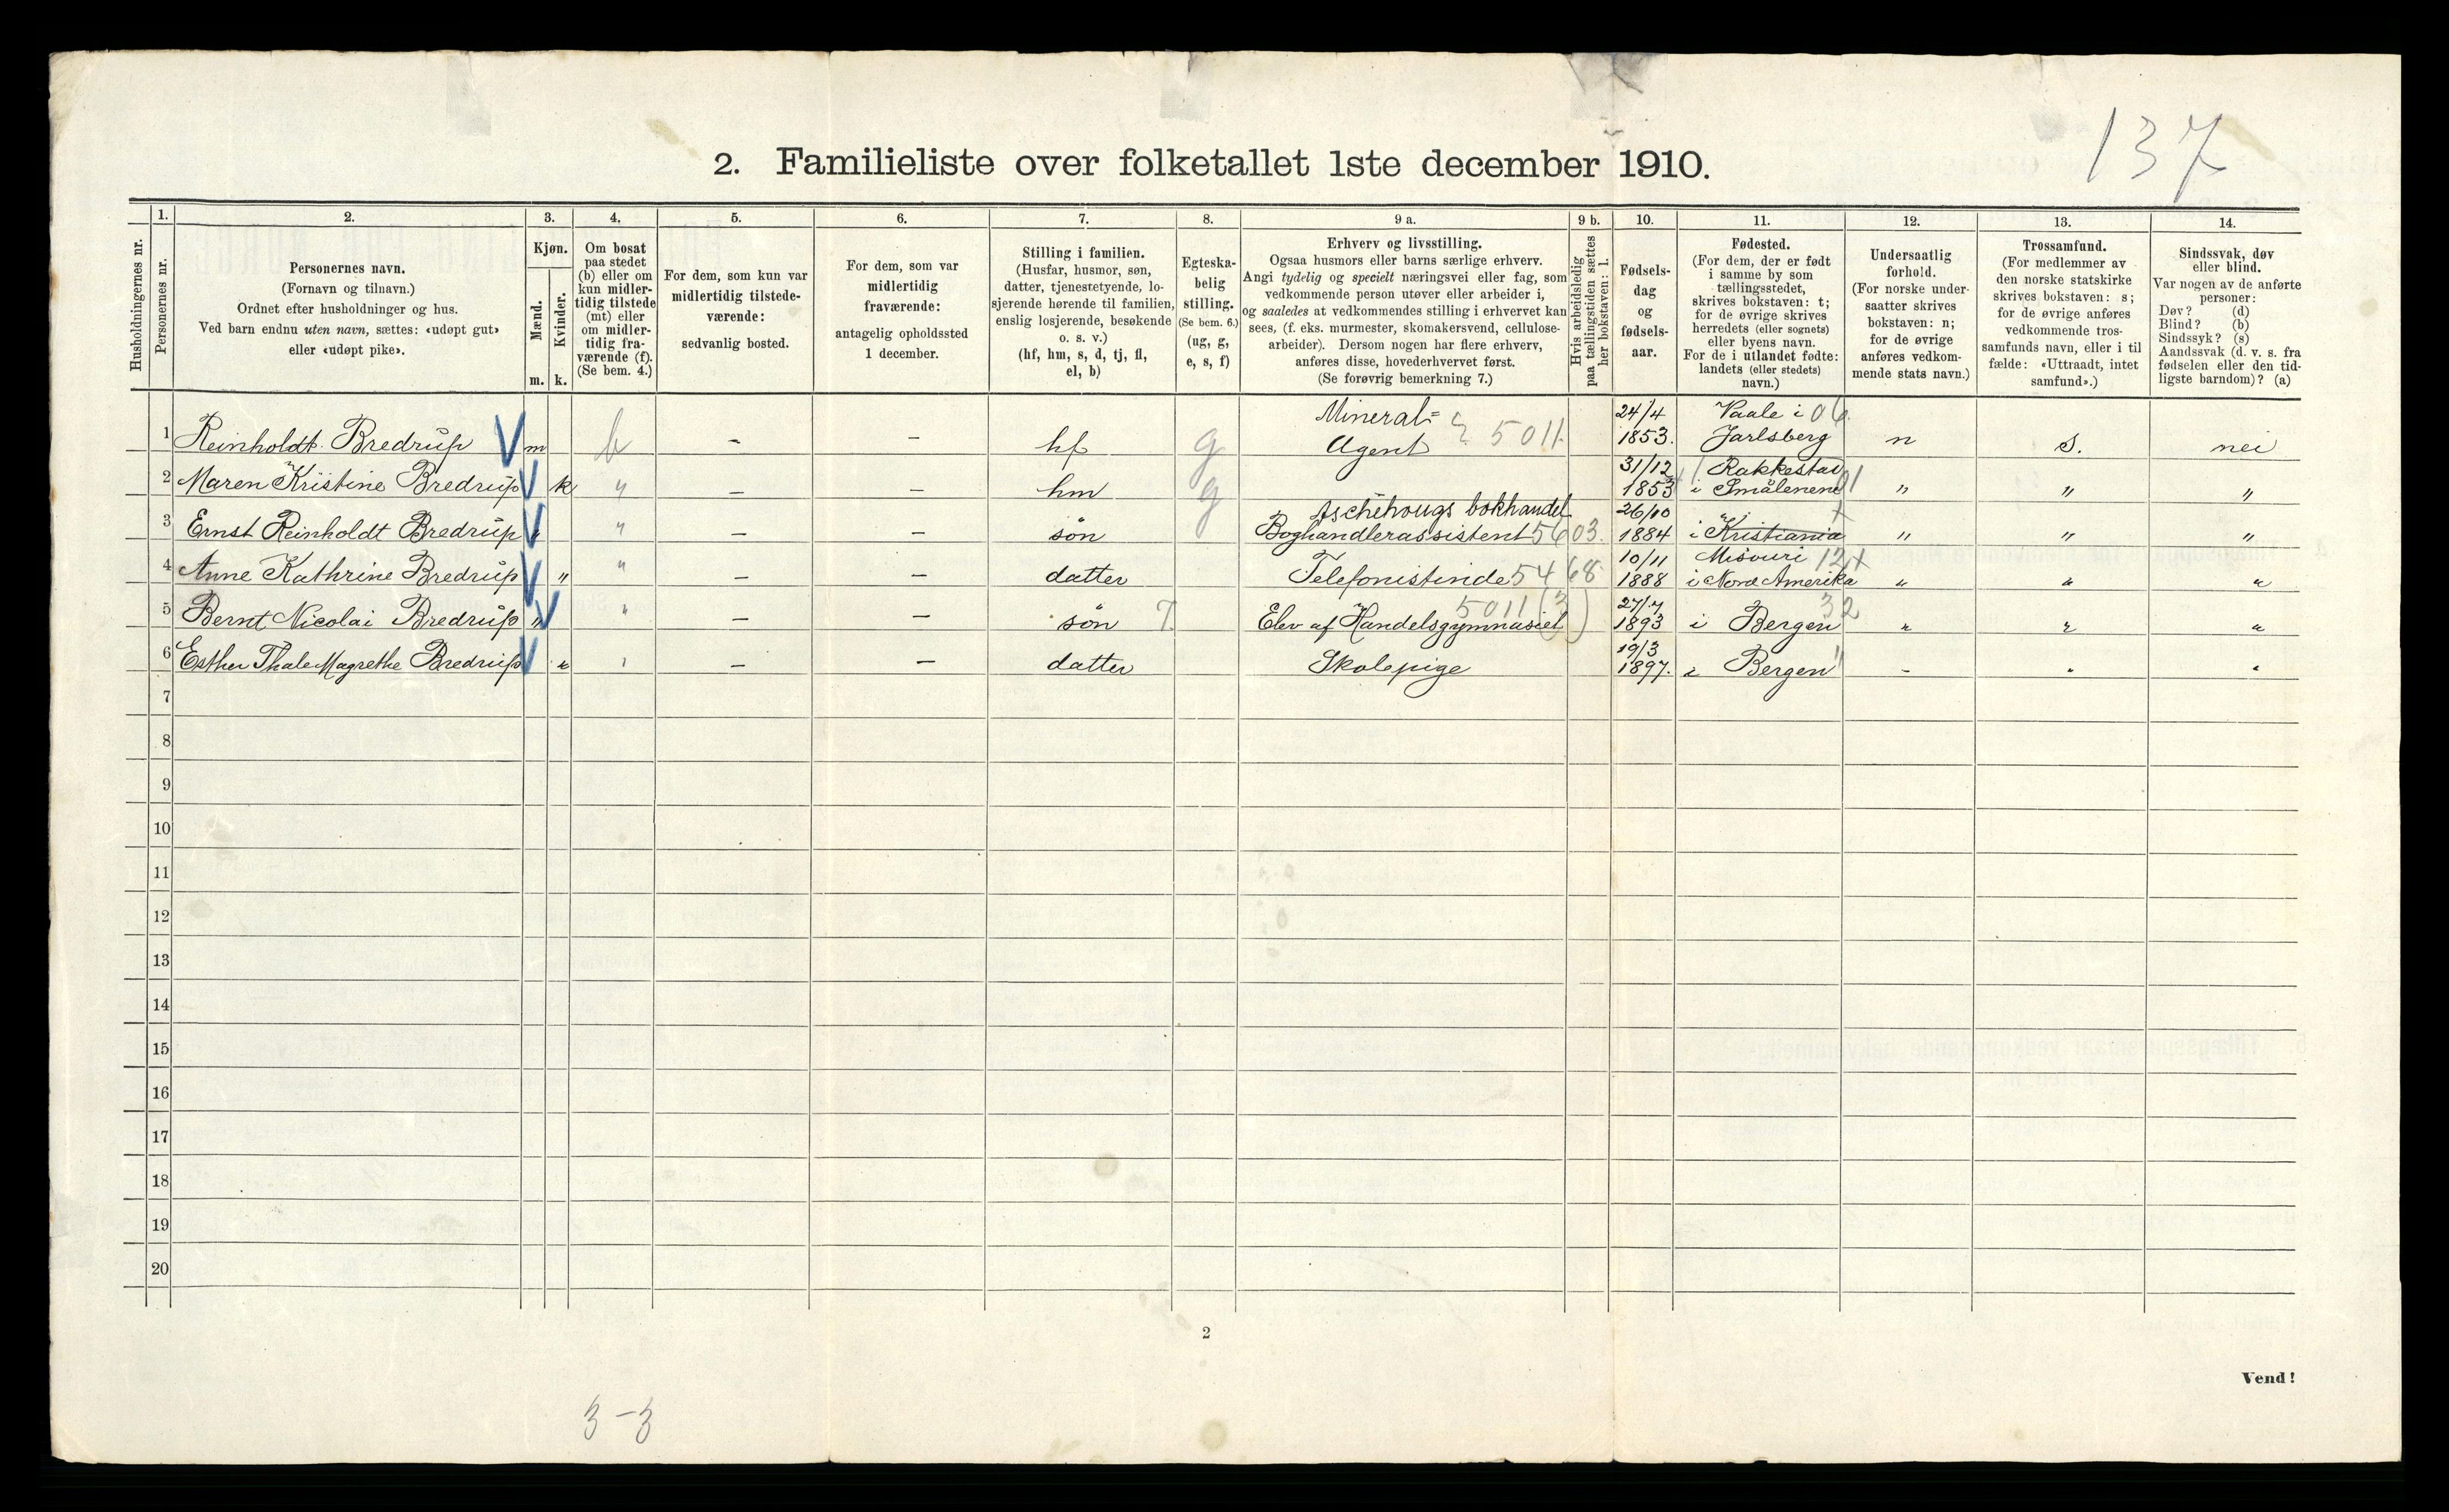 137
2. Familieliste over folketallet 1ste december 1910.
1. 2. 3. 4. 5. 6. 7. 8. 9 a. 9 b. 10. 11. 12. 13. 14.
Husholdningernes nr.
Personernes nr.
Personernes navn.
(Fornavn og tilnavn.)
Ordnet efter husholdninger og hus.
Ved barn endnu uten navn, sættes: «udøpt gut»
eller «udøpt pike».
Kjøn.
Mænd.
Kvinder.
m. k.
Om bosat
paa stedet
(b) eller om
kun midler-
tidig tilstede
(mt) eller
om midler-
tidig fra-
værende (f).
(Se bem. 4.)
For dem, som kun var
midlertidig tilstede-
værende:
sedvanlig bosted.
For dem, som var
midlertidig
fraværende:
antagelig opholdssted
1 december.
Stilling i familien.
(Husfar, husmor, søn,
datter, tjenestetyende, lo-
sjerende hørende til familien,
enslig losjerende, besøkende
o. s. v.)
(hf, hm, s, d, tj, fl,
el, b)
Egteska-
belig
stilling.
(Se bem. 6.)
(ug, g,
e, s, f)
Erhverv og livsstilling.
Ogsaa husmors eller barns særlige erhverv.
Angi tydelig og specielt næringsvei eller fag, som
vedkommende person utøver eller arbeider i,
og saaledes at vedkommendes stilling i erhvervet kan
sees, (f. eks. murmester, skomakersvend, cellulose-
arbeider). Dersom nogen har flere erhverv,
anføres disse, hovederhvervet først.
(Se forøvrig bemerkning 7.)
Hvis arbeidsledig
paa tællingstiden sættes
her bokstaven: l.
Fødsels-
dag
og
fødsels-
aar.
Fødested.
(For dem, der er født
i samme by som
tællingsstedet,
skrives bokstaven: t;
for de øvrige skrives
herredets (eller sognets)
eller byens navn.
For de i utlandet fødte:
landets (eller stedets)
navn.)
Undersaatlig
forhold.
(For norske under-
saatter skrives
bokstaven: n;
for de øvrige
anføres vedkom-
mende stats navn.)
Trossamfund.
(For medlemmer av
den norske statskirke
skrives bokstaven: s;
for de øvrige anføres
vedkommende tros-
samfunds navn, eller i til
fælde: «Uttraadt, intet
samfund».)
Sindssvak, døv
eller blind.
Var nogen av de anførte
personer:
Døv? (d)
Blind? (b)
Sindssyk? (s)
Aandssvak (d. v. s. fra
fødselen eller den tid-
ligste barndom)? (a)
Mineral= 24/4 Vaale i 06.
1 Reinholdt Bredrup V m b - - hf g Agent 5011. 1853. Jarlsberg n S. nei
31/12 Rakkestad
2 Maren Kristine Bredrup V k " - - hm g 1853 i Smålenene 01 " " "
Aschehougs bokhandel 26/10
3 Ernst Reinholdt Bredrup V " " - - søn Boghandlerassistent 5603. 1884 i Kristiania " " "
10/11 Misouri 12 +
4 Anne Kathrine Bredrup V " " - - datter Telefonistinde 5468 1888 i Nord Amerika " " "
5011 (3) 27/7 32
5 Bernt Nicolai Bredrup V " " - - søn 7. Elev af Handelsgymnasiet 1893 i Bergen " " "
19/3
6 Esther Thale Magrethe Bredrup V " " - - datter Skolepige 1897. i Bergen " - " "
7
8
9
10
11
12
13
14
15
16
17
18
19
20
2
Vend!
3-3